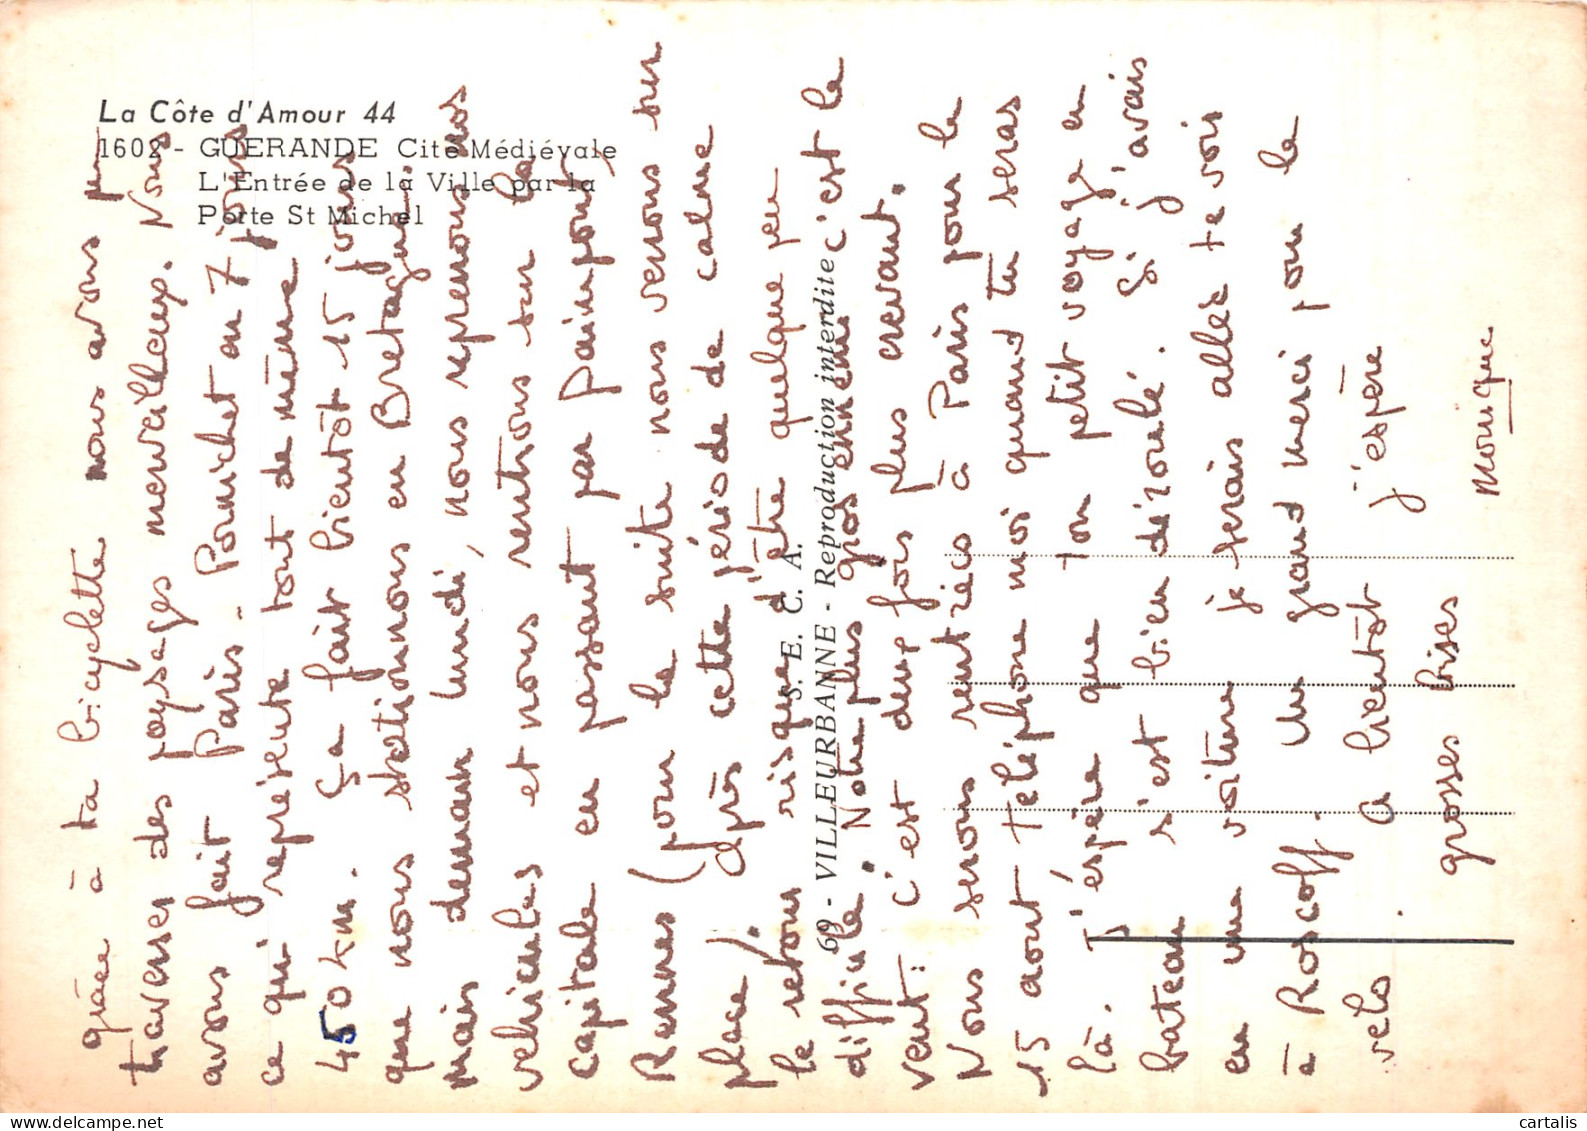 La Côte d'Amour 44
1602 - GUERANDE Cité Médiévale
L'Entrée de la Ville par la
Porte St Michel
S. E. C. A.
69 - VILLEURBANNE - Reproduction interdite
grâce à ta bicyclette nous avons pu
traverser des paysages merveilleux. Nous
avons fait Paris - Pornichet en 7 jours
ce qui représente tout de même
450 km. Ça fait bientôt 15 jours
que nous stationnons en Bretagne,
mais demain lundi, nous reprenons nos
vehicules et nous rentrons sur la
capitale en passant par Paimpont,
Rennes (pour la suite nous verrons sur
place). Après cette période de calme
le retour risque d'être quelque peu
difficile. Notre plus gros ennemi c'est le
vent : c'est deux fois plus crevant.
Nous serons rentrées à Paris pour le
15 aout téléphone moi quand tu seras
là. J'éspère que ton petit voyage en
bateau s'est bien déroulé. Si j'avais
eu une voiture je serais allée te voir
à Roscoff. Un grand merci pour le
velo A bientôt j'espère
grosses bises